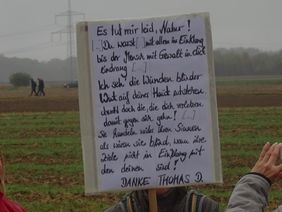 Es tut mir leid, Natur!
[...] Du warst [...] mit allem im Einklang
bis der Mensch mit Gewalt in dich
eindrang [...]
Ich seh' die Wunden blinder
Wut auf deiner Haut
doch die, die dich
damit gegen gehn! [...]
Sie handeln wider ihren Sinnen
als wären sie blind, wann ihre
Ziele nicht in Einklang mit
den deinen sind!
DANKE THOMAS D.